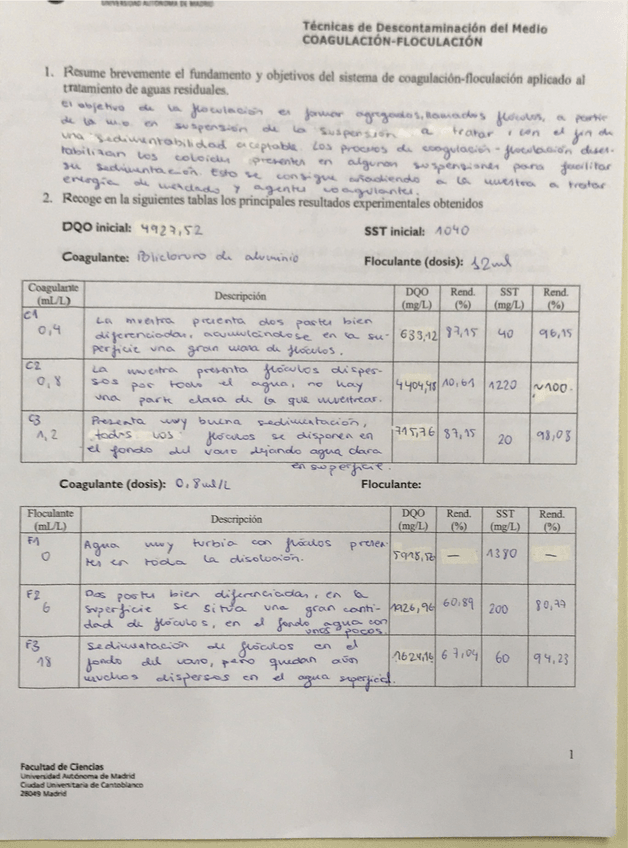 UNIVERSIDAD AUTONOMA DE MADRID
Técnicas de Descontaminación del Medio
COAGULACIÓN-FLOCULACIÓN
1. Resume brevemente el fundamento y objetivos del sistema de coagulación-floculación aplicado al
tratamiento de aguas residuales.
El objetivo de la floculación es formar agregados, llamados flóculos, a partir
de la m.o. en suspensión de la suspensión a tratar, con el fin de
una sedimentabilidad aceptable. Los procesos de coagulación-floculación deses-
tabilizan los coloides presentes en algunas suspensiones para facilitar
su sedimentación. Esto se consigue añadiendo a la muestra a tratar
energía de mezclado y agentes coagulantes.
2. Recoge en la siguientes tablas los principales resultados experimentales obtenidos
DQO inicial: 4927,52 SST inicial: 1040
Coagulante: Policloruro de aluminio Floculante (dosis): 12ml
Coagulante (mL/L) Descripción DQO (mg/L) Rend. (%) SST (mg/L) Rend. (%)
C1 0,4 La muestra presenta dos partes bien
diferenciadas, acumulándose en la su-
perficie una gran masa de flóculos. 633,12 87,15 40 96,15
C2 0,8 La muestra presenta flóculos disper-
sos por todo el agua, no hay
una parte clara de la que muestrear. 4404,48 10,61 1220 ~100
C3 1,2 Presenta muy buena sedimentación,
todos los flóculos se disponen en
el fondo del vaso dejando agua clara
en superficie. 715,76 87,15 20 98,08
Coagulante (dosis): 0,8ml/L Floculante:
Floculante (mL/L) Descripción DQO (mg/L) Rend. (%) SST (mg/L) Rend. (%)
F1 0 Agua muy turbia con flóculos presen-
tes en toda la disolución. 5918,56 — 1380 —
F2 6 Dos partes bien diferenciadas, en la
superficie se sitúa una gran canti-
dad de flóculos, en el fondo agua con
unos pocos. 1926,96 60,89 200 80,77
F3 18 Sedimentación de flóculos en el
fondo del vaso, pero quedan aún
muchos dispersos en el agua superficial. 1624,16 67,04 60 94,23
1
Facultad de Ciencias
Universidad Autónoma de Madrid
Ciudad Universitaria de Cantoblanco
28049 Madrid